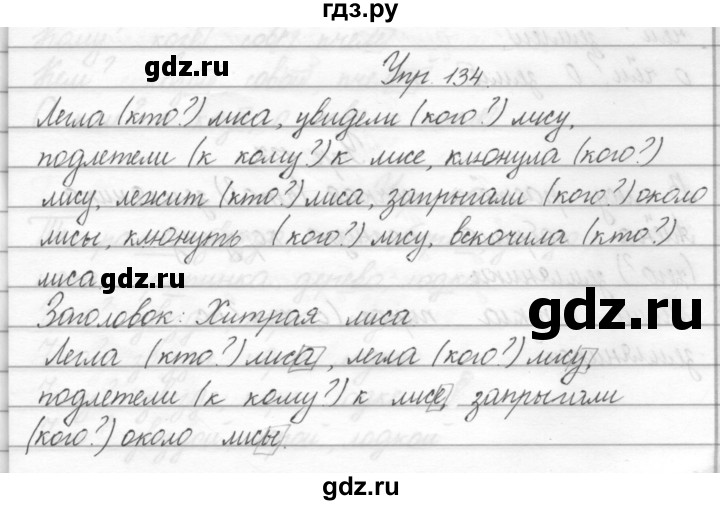 гдз.ру
gdz.ru
Упр 134.
Легла (кто?) лиса, увидели (кого?) лису,
подлетели (к кому?) к лисе, клюнула (кого?)
лису, лежит (кто?) лиса, запрыгали (кого?) около
лисы, клюнуть (кого?) лису, вскочила (кто?)
лиса
gdz.ru
gdz.ru
Заголовок: Хитрая лиса
Легла (кто?) лиса, легла (кого?) лису,
подлетели (к кому?) к лисе, запрыгали
(кого?) около лисы.
gdz.ru